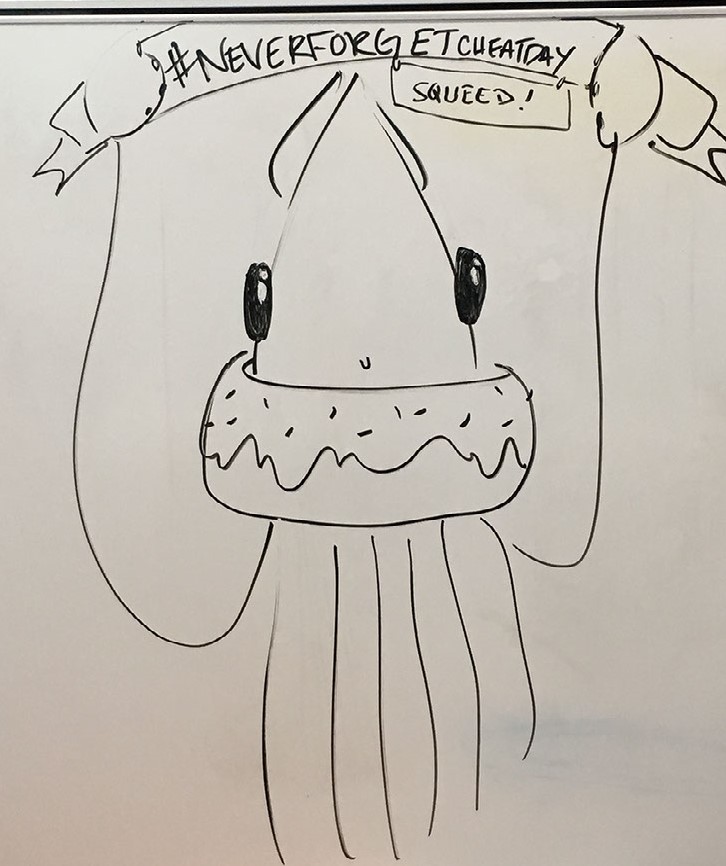 #NEVERFORGETCHEATDAY
SQUEED!